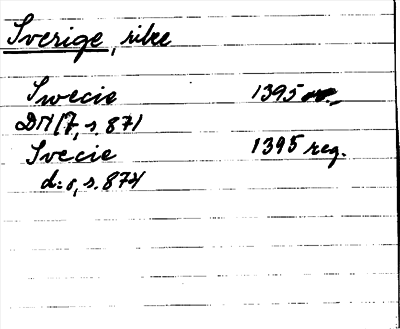 Sverige, rike
Swecie 1395 or.
DN 17, s. 871
Svecie 1395 reg.
d:o, s. 874